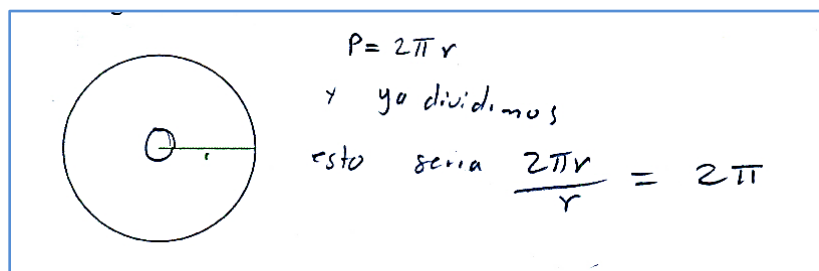 P = 2πr
y ya dividimos
esto seria 2πr/r = 2π
r